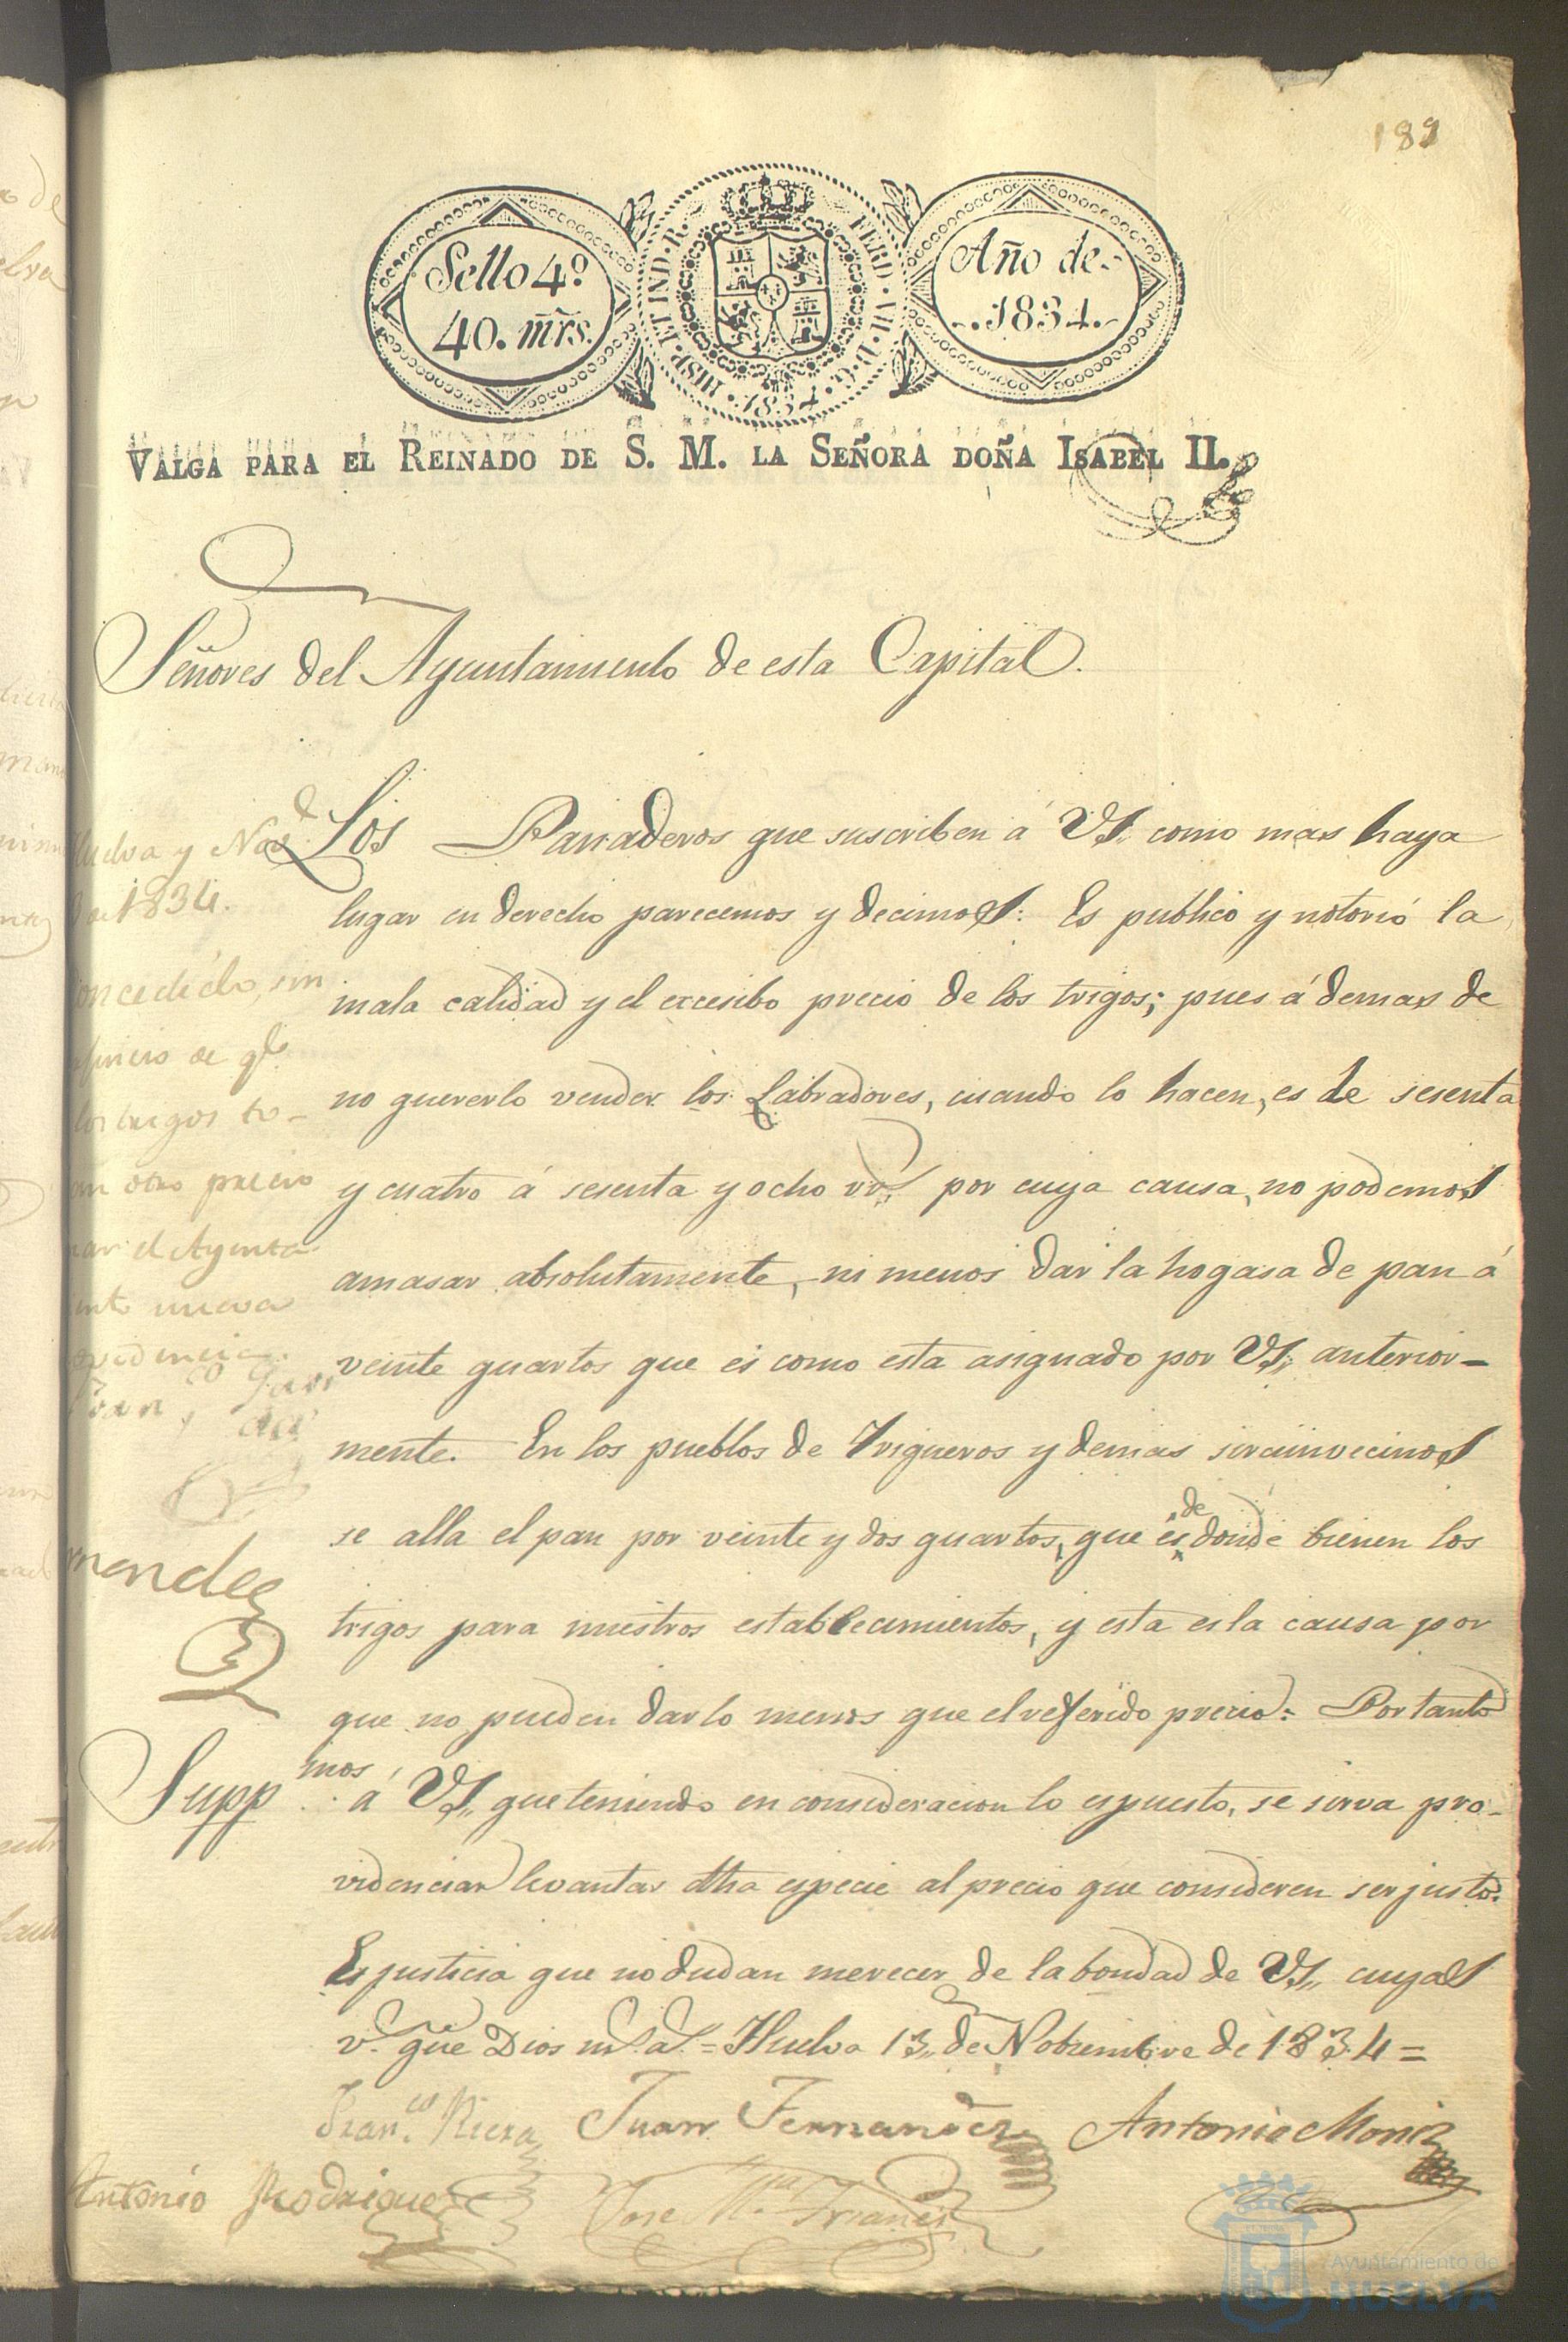 189
Sello 4º
40. mrs.
HISP. ET IND. R.
FERD. VII. D. G.
1834
Año de
1834.
VALGA PARA EL REINADO DE S. M. LA SEÑORA DOÑA ISABEL II.
Señores del Ayuntamiento de esta Capital.
Los Panaderos que suscriben á VS. como mas haya
lugar en derecho parecemos y decimos: Es publico y notorio la
mala calidad y el excesibo precio de los trigos; pues á demas de
no quererlo vender los Labradores, cuando lo hacen, es de sesenta
y cuatro á sesenta y ocho rs. por cuya causa, no podemos
amasar absolutamente, ni menos dar la hogasa de pan á
veinte quartos que es como esta asignado por VS. anterior-
mente. En los pueblos de Trigueros y demas sircunvecinos
se alla el pan por veinte y dos quartos, que es de donde bienen los
trigos para nuestros establecimientos, y esta es la causa por
que no pueden darlo menos que el referido precio: Por tanto
Suppmos. á VS. que teniendo en consideracion lo espuesto, se sirva pro-
videnciar levantar dha especie al precio que consideren ser justo.
Es justicia que no dudan merecer de la bondad de VS. cuyas
v. gue Dios ms. as. = Huelva 13 de Nobiembre de 1834 =
Franco. Riera Juan Fernandez Antonio Moniz
Antonio Rodriguez Jose Ma.
Huelva y Nov
de 1834.
oncedido, sin
de qe.
los trigos to-
an otro precio
el Ayunta
nueva
mendez
Ayuntamiento de
HUELVA